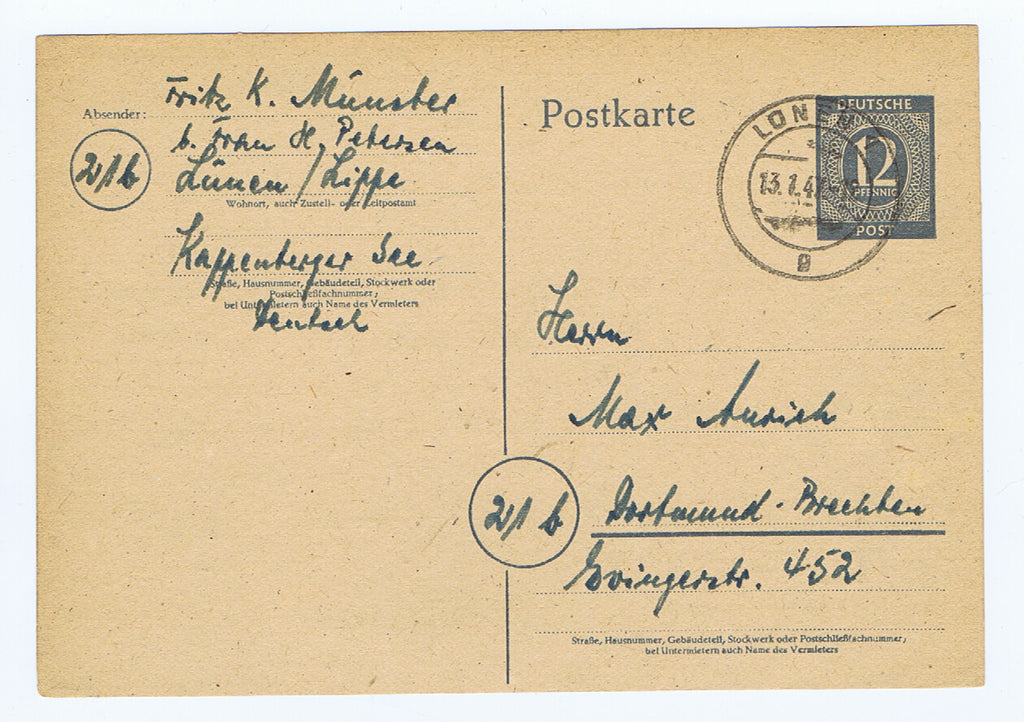 Absender:
Fritz K. Münster
b. Frau H. Petersen
21b
Lünen/Lippe
Wohnort, auch Zustell- oder Leitpostamt
Kappenberger See
Straße, Hausnummer, Gebäudeteil, Stockwerk oder
Postschließfachnummer;
bei Untermietern auch Name des Vermieters
Deutsch
Postkarte
LÜNEN
13.1.47
g
DEUTSCHE
12
PFENNIG
POST
Herrn
Max Aurich
21 b
Dortmund-Brechten
Evingerstr. 452
Straße, Hausnummer, Gebäudeteil, Stockwerk oder Postschließfachnummer;
bei Untermietern auch Name des Vermieters